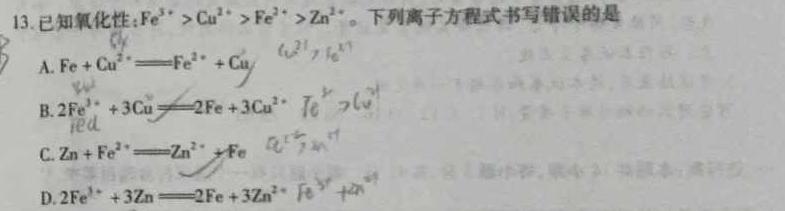 13. 已知氧化性:Fe³⁺ > Cu²⁺ > Fe²⁺ > Zn²⁺。下列离子方程式书写错误的是
A. Fe + Cu²⁺ ══ Fe²⁺ + Cu
B. 2Fe³⁺ + 3Cu ══ 2Fe + 3Cu²⁺ Fe³⁺ > Cu²⁺
C. Zn + Fe²⁺ ══ Zn²⁺ + Fe
D. 2Fe³⁺ + 3Zn ══ 2Fe + 3Zn²⁺